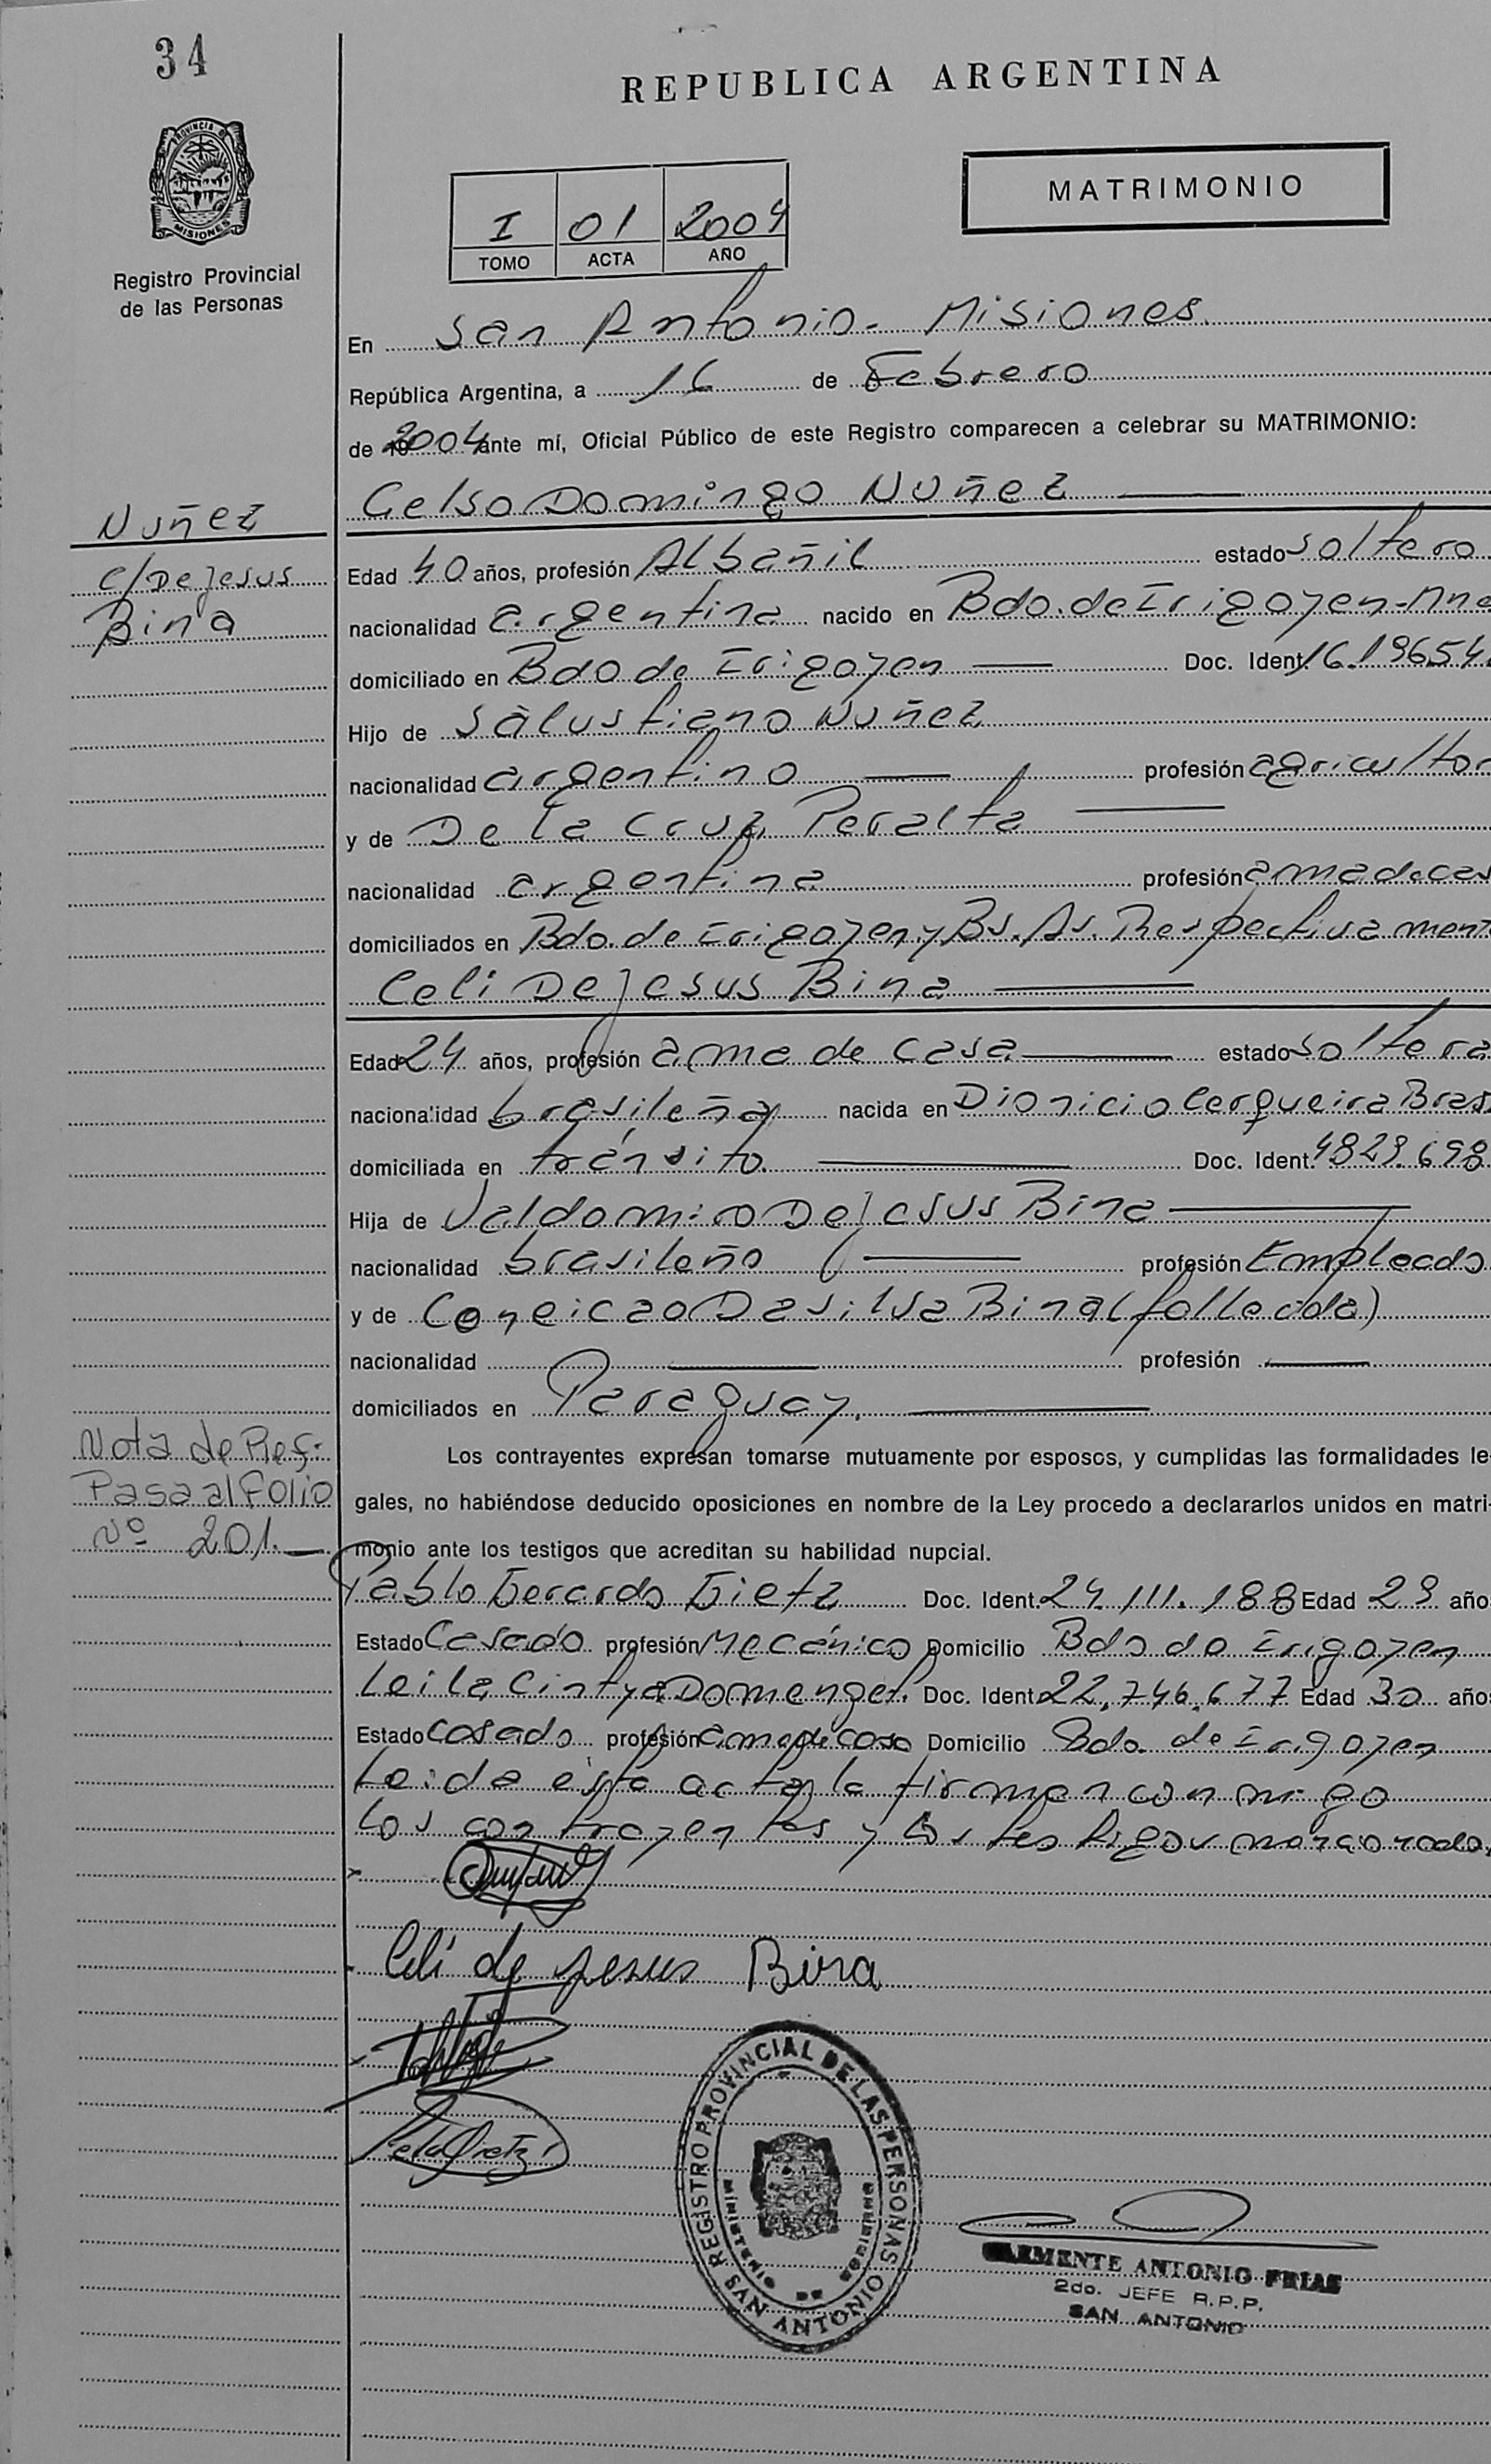 34
REPUBLICA ARGENTINA
PROVINCIA DE
MISIONES
MATRIMONIO
I 01 2004
TOMO ACTA AÑO
Registro Provincial
de las Personas
En San Antonio - Misiones
República Argentina, a 16 de Febrero
de 2004 ante mí, Oficial Público de este Registro comparecen a celebrar su MATRIMONIO:
Celso Domingo Nuñez
Nuñez
c/ De Jesus
Bina
Edad 40 años, profesión Albañil estado soltero
nacionalidad argentina nacido en Bdo. de Irigoyen - Mnes
domiciliado en Bdo de Irigoyen Doc. Ident. 16.19654
Hijo de Salustiano Nuñez
nacionalidad argentino profesión agricultor
y de De la Cruz Peralta
nacionalidad argentina profesión ama de cas
domiciliados en Bdo. de Irigoyen y Bs. As. Respectivament
Celi De Jesus Bina
Edad 24 años, profesión ama de casa estado soltera
nacionalidad brasileña nacida en Dionicio Cerqueira Bras
domiciliada en tránsito. Doc. Ident. 4829.698
Hija de Valdomiro De Jesus Bina
nacionalidad brasileño profesión Empleado
y de Coneicao Da silva Bina (fallecida)
nacionalidad profesión
domiciliados en Paraguay.
Los contrayentes expresan tomarse mutuamente por esposos, y cumplidas las formalidades le-
gales, no habiéndose deducido oposiciones en nombre de la Ley procedo a declararlos unidos en matri-
monio ante los testigos que acreditan su habilidad nupcial.
Nota de Ref:
Pasa al Folio
Nº 201.-
Pablo Gerardo Gietz Doc. Ident. 24.111.188 Edad 29 año
Estado Casado profesión Mecánico Domicilio Bdo de Irigoyen
Leila Cintya Domenget. Doc. Ident. 22.746.677 Edad 30 años
Estado casado profesión ama de casa Domicilio Bdo. de Irigoyen
Leida esta acta, la firman conmigo
los contrayentes y los testigos
Celi de Jesus Bina
REGISTRO PROVINCIAL DE LAS PERSONAS
SAN ANTONIO
MINISTERIO DE GOBIERNO
CLEMENTE ANTONIO FRIAS
2do. JEFE R.P.P.
SAN ANTONIO